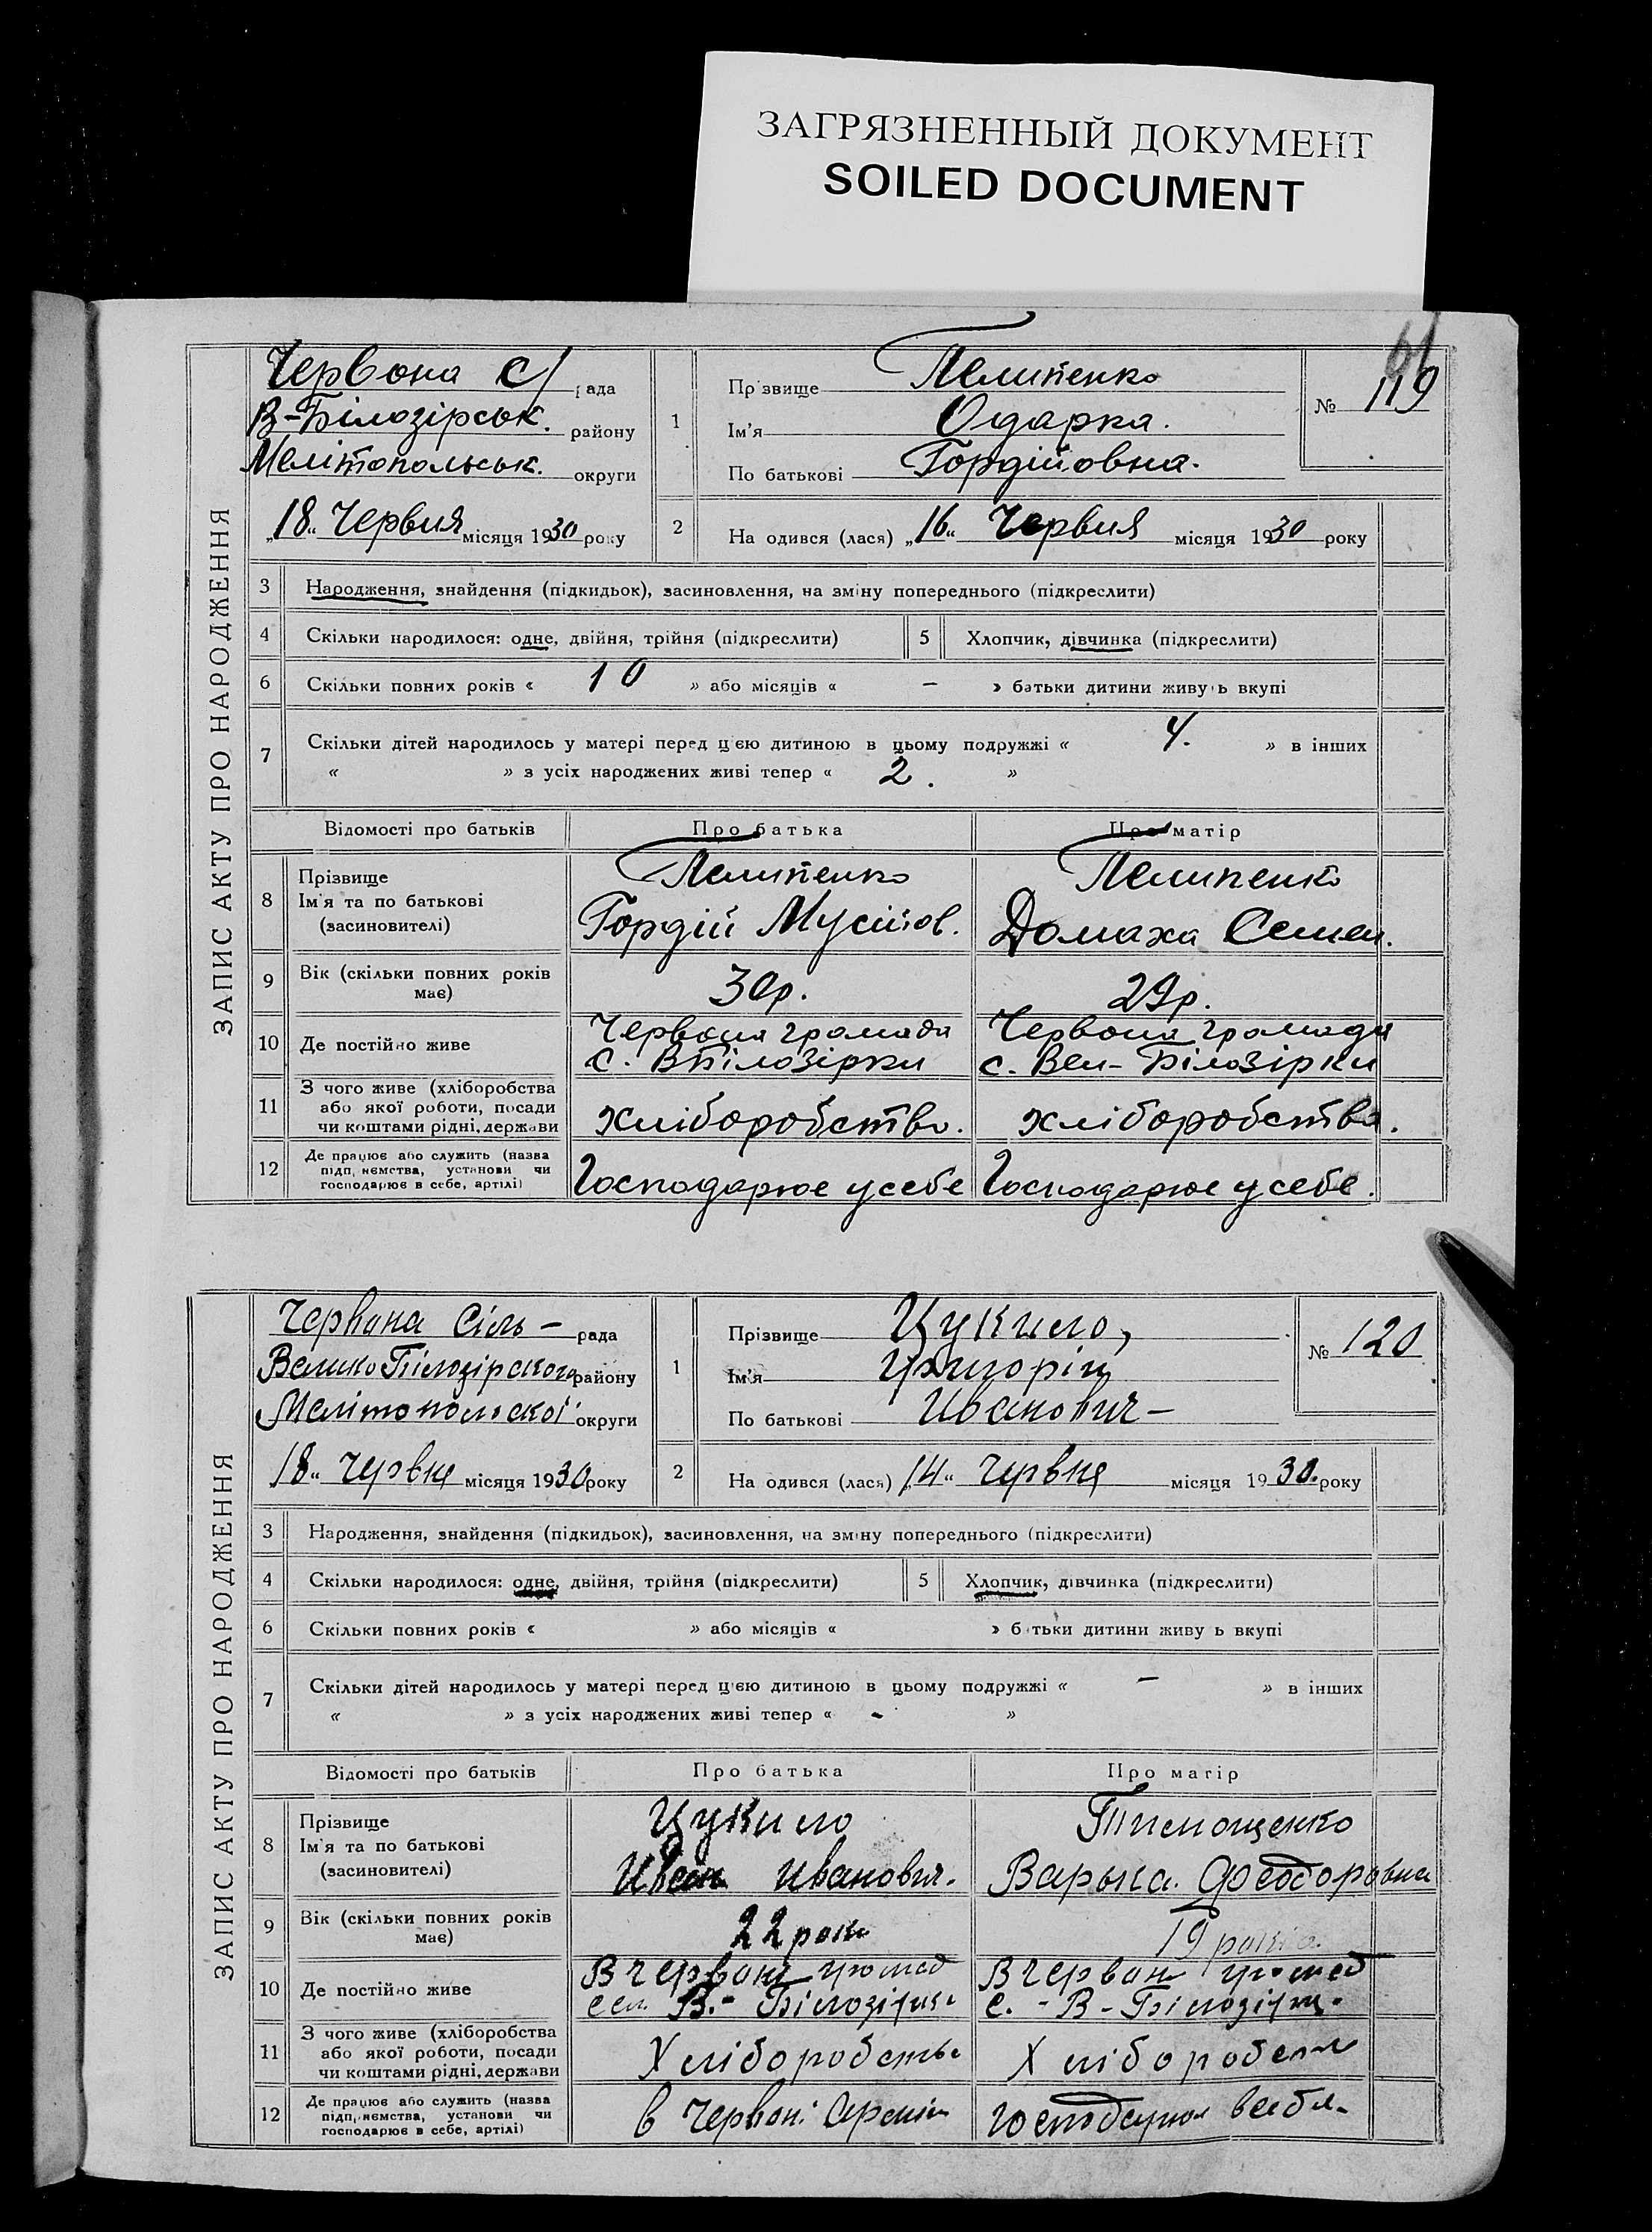 ЗАГРЯЗНЕННЫЙ ДОКУМЕНТ
SOILED DOCUMENT
61
ЗАПИС АКТУ ПРО НАРОДЖЕННЯ
Червона С/ рада
В-Білозірськ. району
Мелітопольськ. округи
„18“ Червня місяця 1930 року
1
Прізвище Пелипенко
Ім'я Одарка.
По батькові Гордійовна.
№ 119
2 На одився (лася) „16“ Червня місяця 1930 року
3 Народження, знайдення (підкидьок), засиновлення, на зміну попереднього (підкреслити)
4 Скільки народилося: одне, двійня, трійня (підкреслити) 5 Хлопчик, дівчинка (підкреслити)
6 Скільки повних років « 10 » або місяців « — » батьки дитини живуть вкупі
7 Скільки дітей народилось у матері перед цією дитиною в цьому подружжі « 4. » в інших
« » з усіх народжених живі тепер « 2. »
Відомості про батьків Про батька Про матір
8 Прізвище Ім'я та по батькові (засиновителі)
Пелипенко Пелипенко
Гордій Мусійов. Домаха Семен.
9 Вік (скільки повних років має) 30р. 29р.
10 Де постійно живе
Червона громада Червона громада
с. ВБілозірки с. Вел-Білозірки
11 З чого живе (хліборобства
або якої роботи, посади
чи коштами рідні, держави
хліборобство. хліборобство.
12 Де працює або служить (назва
підприємства, установи чи
господарює в себе, артілі)
Господарює у себе Господарює у себе.
ЗАПИС АКТУ ПРО НАРОДЖЕННЯ
Червона Сіль- рада
ВеликоБілозірского району
Мелітопольскої округи
„18“ Червня місяця 1930 року
1
Прізвище Цукило,
Ім'я Григорій
По батькові Иванович-
№ 120
2 На одився (лася) „14“ Червня місяця 1930. року
3 Народження, знайдення (підкидьок), засиновлення, на зміну попереднього (підкреслити)
4 Скільки народилося: одне, двійня, трійня (підкреслити) 5 Хлопчик, дівчинка (підкреслити)
6 Скільки повних років « » або місяців « » батьки дитини живуть вкупі
7 Скільки дітей народилось у матері перед цією дитиною в цьому подружжі « — » в інших
« » з усіх народжених живі тепер « - »
Відомості про батьків Про батька Про матір
8 Прізвище Ім'я та по батькові (засиновителі)
Цукило Тимощенко
Иван Иванович. Варька Федоровна
9 Вік (скільки повних років має) 22 роки 19 років.
10 Де постійно живе
В червоні громад В червон громад
сел. В.-Білозірка с.-В-Білозірц.
11 З чого живе (хліборобства
або якої роботи, посади
чи коштами рідні, держави
Хліборобство Хлібороб
12 Де працює або служить (назва
підприємства, установи чи
господарює в себе, артілі)
в Червоні Армії господарює в себя-